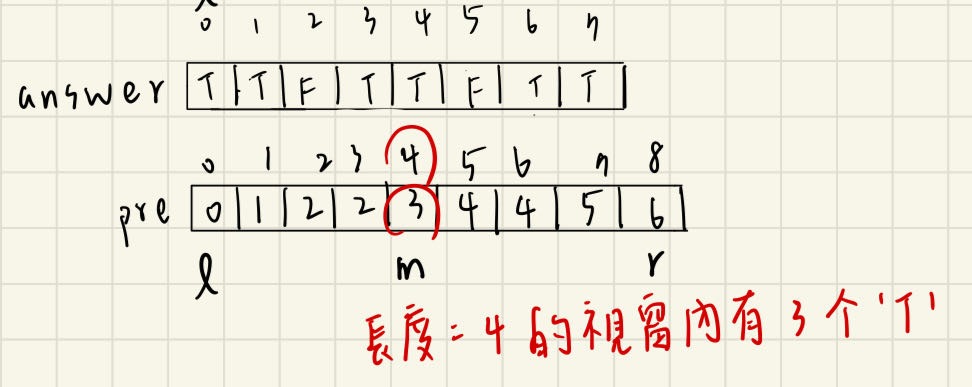 0 1 2 3 4 5 6 7
answer T T F T T F T T
0 1 2 3 4 5 6 7 8
pre 0 1 2 2 3 4 4 5 6
l m r
長度=4的視窗內有3个'T'